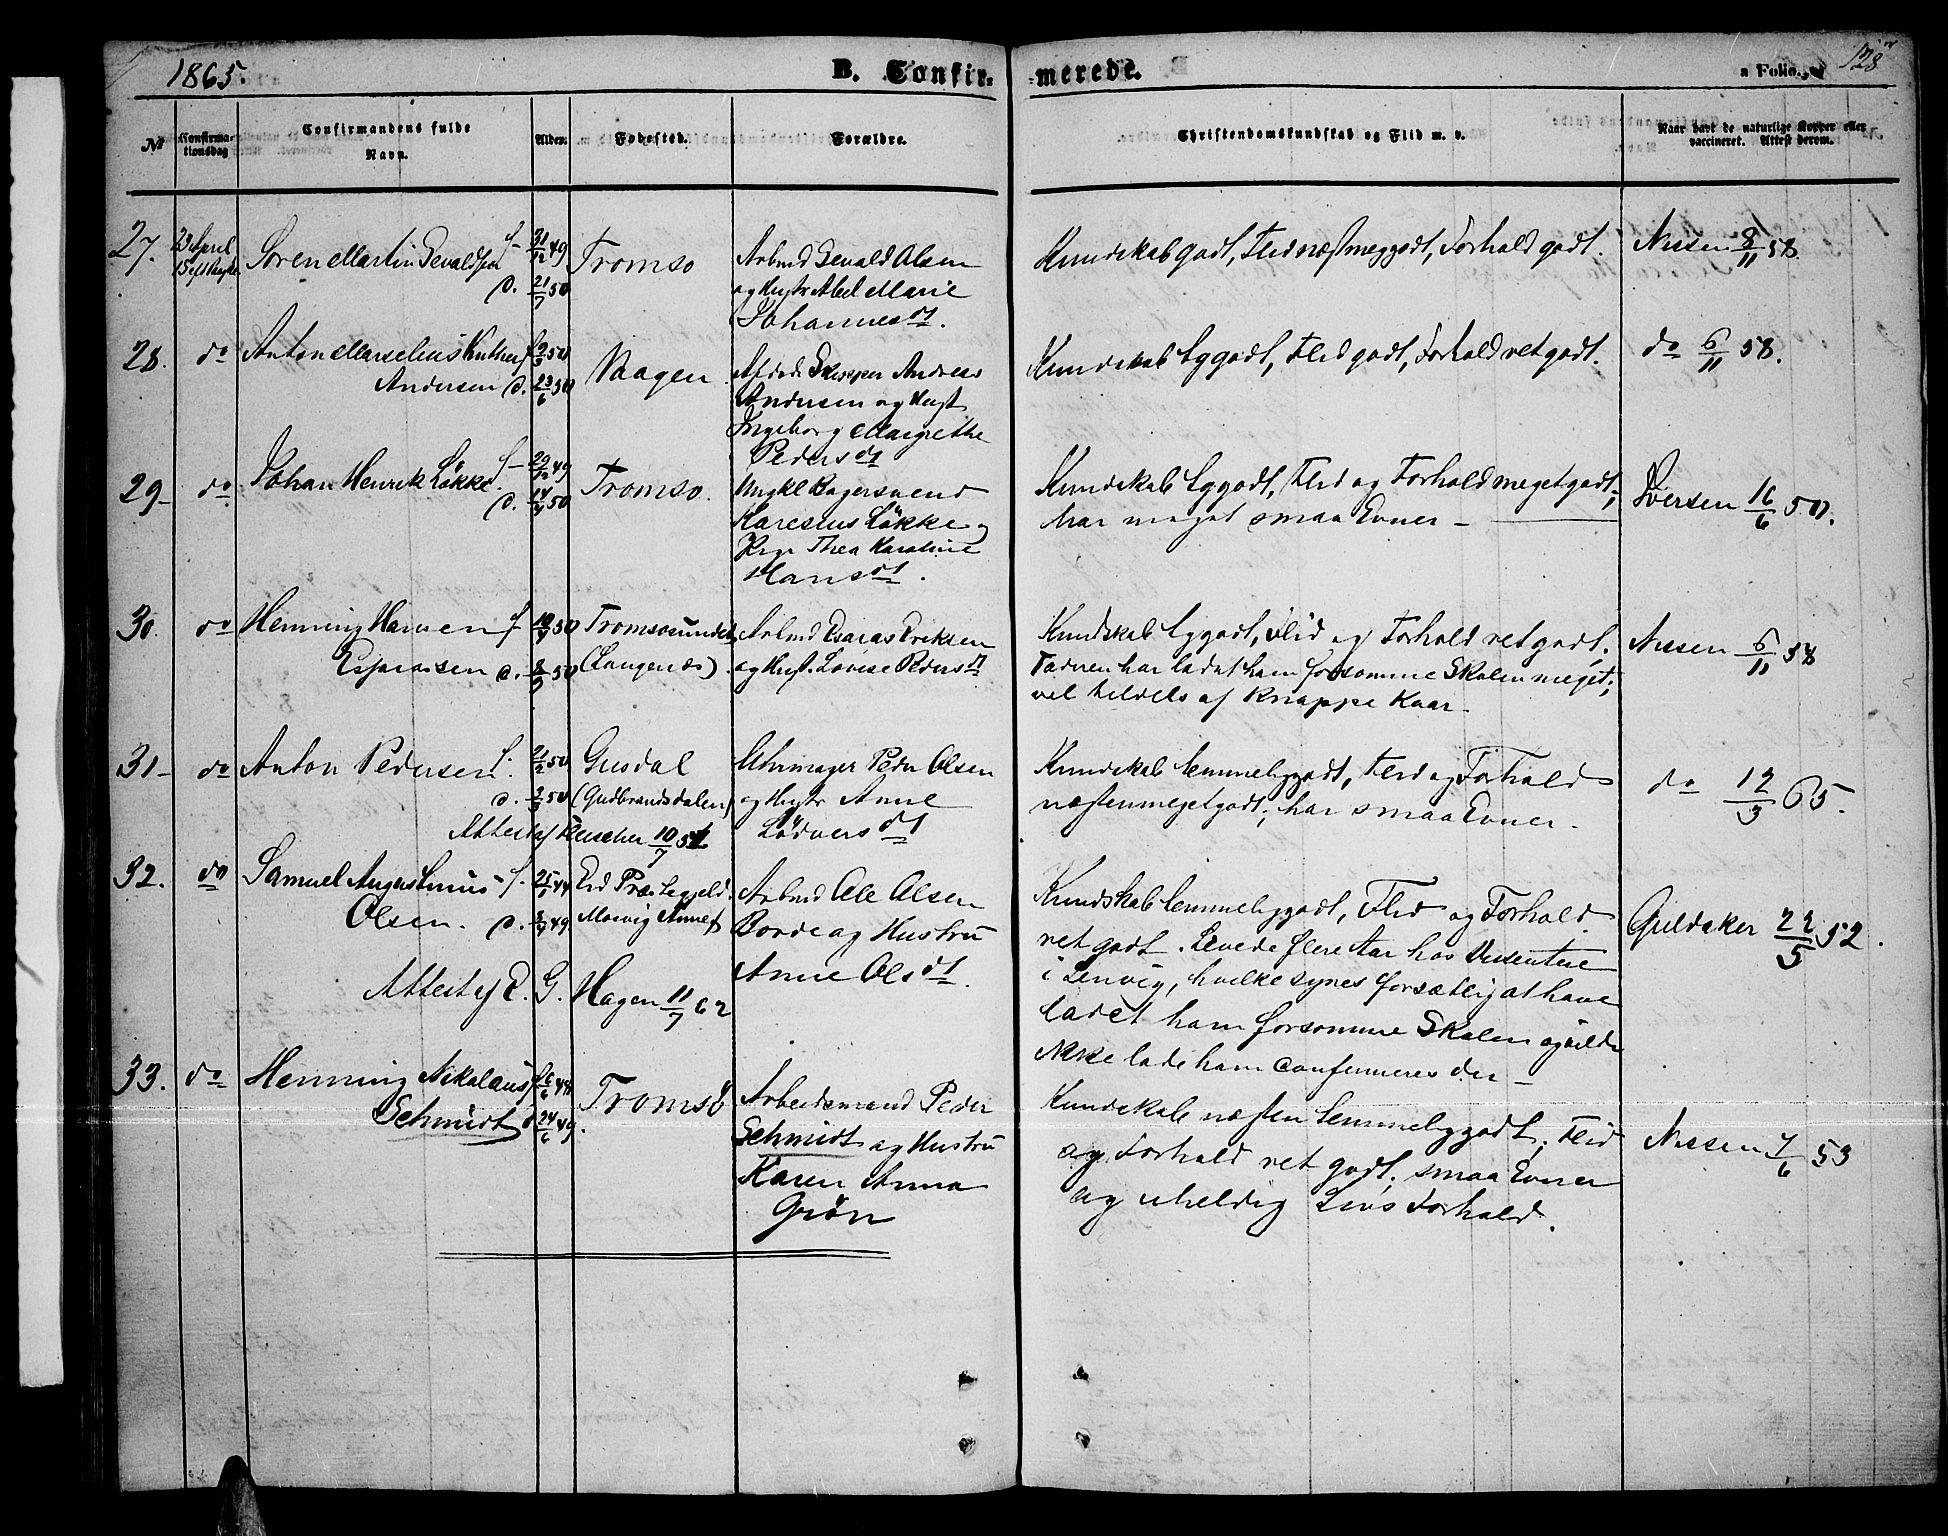 1865.
B. Confir-
merede.
Folio
128
№
Confirma-
tionsdag
Confirmandens fulde
Navn.
Alder.
Fødested.
Forældre.
Christendomskundskab og Flid m. v.
Naar havt de naturlige Kopper eller
vaccineret. Attest derom.
27.
23 April
Søren Martin Sevaldsen
f. 31/12 49
d. 21/7 50
Tromsø
Arbmd Sevald Olsen
og Hustr Abel Marie
Johannesdt.
Kundskab godt, Flid næst meg godt, Forhold godt.
Nissen 8/11 58.
28.
do
Anton Marselius
Andersen
d. 23/6 50
Vaagen
Afdøde Skipper Andreas
Andersen og Hust
Ingeborg Margrethe
Pedersdt
Kundskab tg godt, Flid godt, Forhold ret godt.
do 6/11 58.
29-
do
Johan Henrik Løkke
f- 29/12 49
d. 14/4 50
Tromsø.
Karesius Løkke og
Thea Karoline
Hansdt.
Kundskab tg godt, Flid og Forhold meget godt;
har meget smaa Evner -
Iversen 16/6 50.
30.
do
Henning Hansen
Esaiassen
Tromsøsundet
(Langenæs).
Arbmd Esaias Eriksen
og Hust. Lovise Pedersdt
Kundskab tg godt, Flid og Forhold ret godt.
Faderen har ladet ham forsømme Skolen meget;
vel tildels af knappe Kaar.
Nissen 6/11 58
31-
do
Anton Pedersen
f. 21/2 50
Gusdal
(Gudbrandsdalen)
Uhrmager Peder Olsen
og Hustr Anne
Lødversdt
Attest af 10/7
Kundskab temmelig godt, Flid og Forhold
næsten meget godt; har smaa Evner.
do 12/3 65.
32.
do
Samuel Augustinius
Olsen.
Eid Præstegjeld.
Arbmd Ole Olsen
Borde og Hustru
Anne Olsdt.
Attest af E. G. Hagen 11/7 62
Kundskab temmelig godt, Flid og Forhold
ret godt. Levede flere Aar hos
i Lenvig, hvilke synes forsætlig at have
ladet ham forsømme Skolen og vilde
ikke lade ham confirmeres der -
Guldaker 22/5 52.
33.
do
Henning Nikolaus
Schmidt
d 24/6 49.
Tromsø
Arbeidsmand Peder
Schmidt og Hustru
Karen Anna
Grøn
Kundskab næsten temmelig godt; Flid
og Forhold ret godt. smaa Evner
og uheldig Livs Forhold.
Nissen 7/6 53